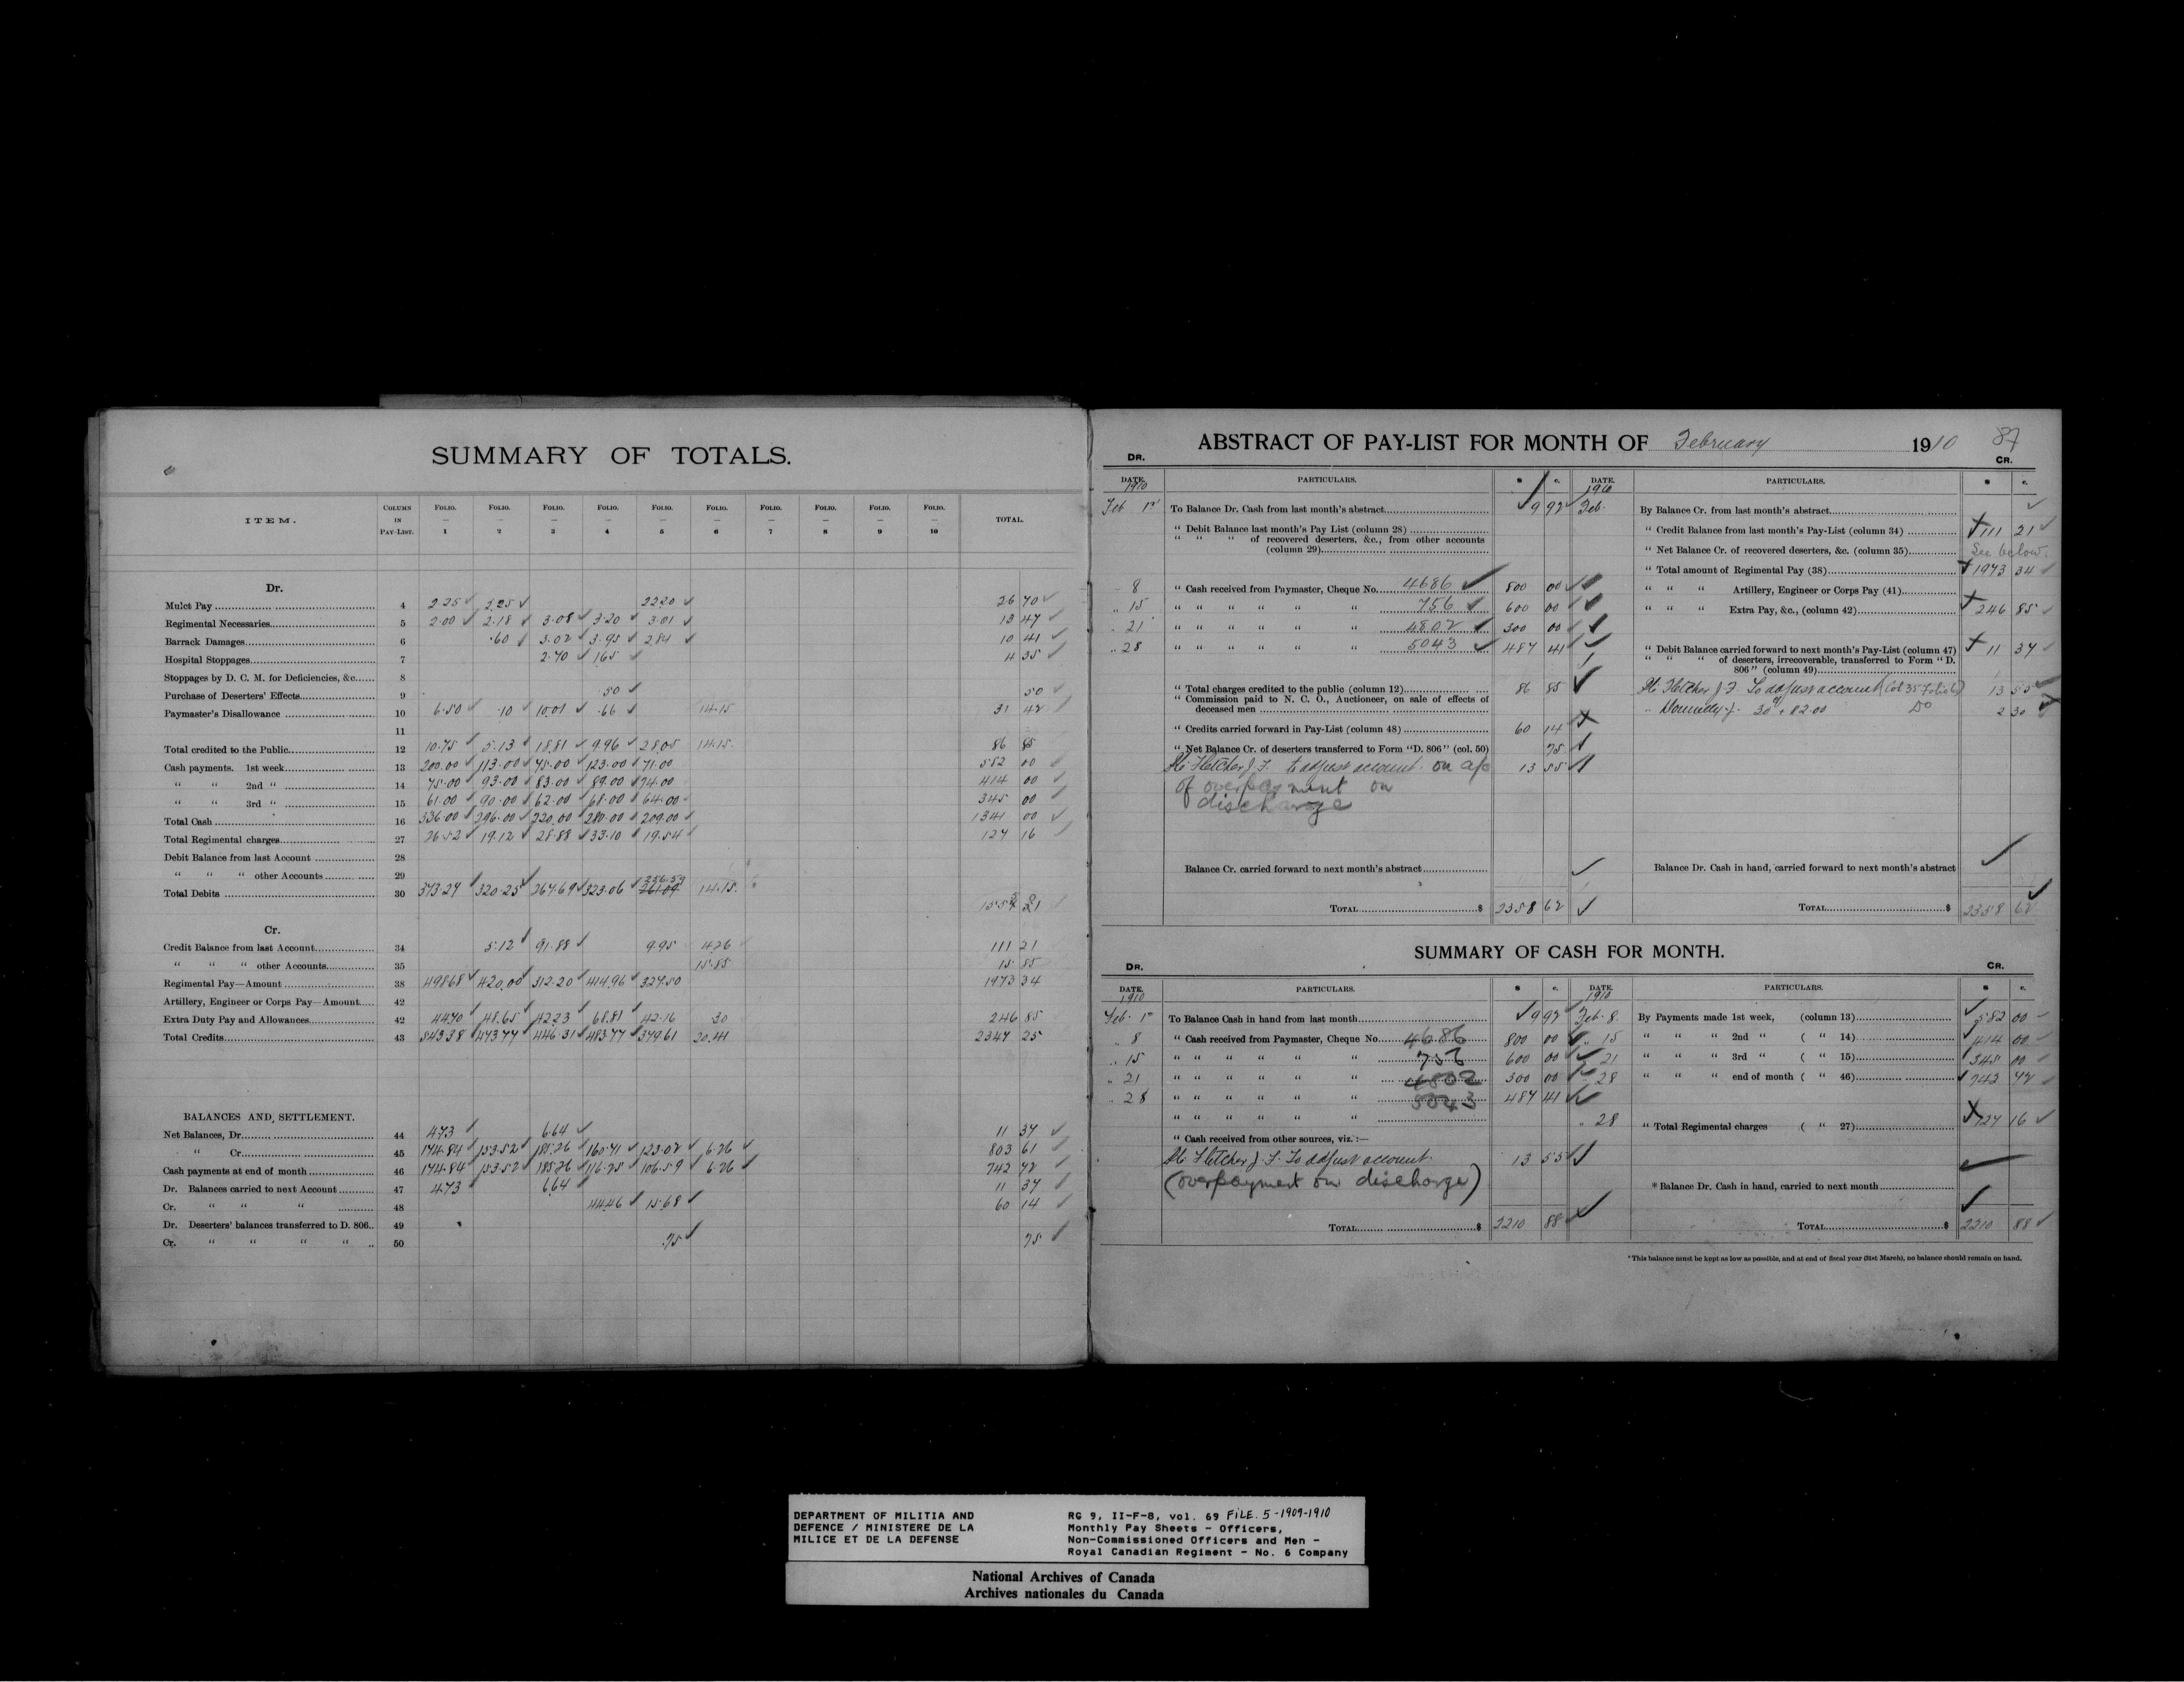 SUMMARY OF TOTALS.
ITEM. COLUMN IN PAY-LIST. FOLIO. — 1 FOLIO. — 2 FOLIO. — 3 FOLIO. — 4 FOLIO. — 5 FOLIO. — 6 FOLIO. — 7 FOLIO. — 8 FOLIO. — 9 FOLIO. — 10 TOTAL.
Dr.
Mulct Pay 4 2.25 2.25 22.20 26 70
Regimental Necessaries 5 2.00 2.18 3.08 3.20 3.01 13 47
Barrack Damages 6 .60 3.02 3.95 2.84 10 41
Hospital Stoppages 7 2.70 1.65 4 35
Stoppages by D. C. M. for Deficiencies, &c. 8
Purchase of Deserters' Effects 9 .50 50
Paymaster's Disallowance 10 6.50 .10 10.01 .66 14.15 31 42
11
Total credited to the Public 12 10.75 5.13 18.81 9.96 28.05 14.15 86 85
Cash payments. 1st week 13 200.00 113.00 75.00 123.00 71.00 582 00
" " 2nd " 14 75.00 93.00 83.00 89.00 74.00 414 00
" " 3rd " 15 61.00 90.00 62.00 68.00 64.00 345 00
Total Cash 16 336.00 296.00 220.00 280.00 209.00 1341 00
Total Regimental charges 27 26.52 19.12 28.88 33.10 19.54 127 16
Debit Balance from last Account 28
" " " other Accounts 29
Total Debits 30 373.27 320.25 267.69 323.06 256.59 14.15
Cr.
Credit Balance from last Account 34 5.12 91.88 9.95 4.26 111 21
" " " other Accounts 35 15.85 15 85
Regimental Pay—Amount 38 498.68 420.00 312.20 414.96 327.50 1973 34
Artillery, Engineer or Corps Pay—Amount 42
Extra Duty Pay and Allowances 42 44.70 48.65 42.23 68.81 42.16 30 246 85
Total Credits 43 543.38 473.77 446.31 483.77 379.61 20.41 2347 25
BALANCES AND SETTLEMENT.
Net Balances, Dr. 44 4.73 6.64 11 37
" Cr. 45 174.84 153.52 185.26 160.71 123.02 6.26 803 61
Cash payments at end of month 46 174.84 153.52 185.26 116.25 106.59 6.26 742 72
Dr. Balances carried to next Account 47 4.73 6.64 11 37
Cr. " " " 48 44.46 15.68 60 14
Dr. Deserters' balances transferred to D. 806.. 49
Cr. " " " " .. 50 .75 75
ABSTRACT OF PAY-LIST FOR MONTH OF February 1910 87
DR. CR.
DATE. PARTICULARS. $ c. DATE. PARTICULARS. $ c.
1910 1910
Feb 1st To Balance Dr. Cash from last month's abstract 9 92 Feb. By Balance Cr. from last month's abstract
" Debit Balance last month's Pay List (column 28) " Credit Balance from last month's Pay-List (column 34) 111 21
" " " of recovered deserters, &c., from other accounts (column 29) " Net Balance Cr. of recovered deserters, &c. (column 35) See below.
" Total amount of Regimental Pay (38) 1973 34
8 " Cash received from Paymaster, Cheque No. 4686 800 00 " " " Artillery, Engineer or Corps Pay (41)
" 15 " " " " " " 756 600 00 " " " Extra Pay, &c., (column 42) 246 85
" 21 " " " " " " 4802 300 00
" 28 " " " " " " 5043 487 41 " Debit Balance carried forward to next month's Pay-List (column 47) 11 37
" " " of deserters, irrecoverable, transferred to Form "D. 806" (column 49)
" Total charges credited to the public (column 12) 86 85 Fletcher J. F. To adjust account (Col 35 Folio 6) 13 55
" Commission paid to N. C. O., Auctioneer, on sale of effects of deceased men " Donnelly J. Do 2 30
" Credits carried forward in Pay-List (column 48) 60 14
" Net Balance Cr. of deserters transferred to Form "D. 806" (col. 50) 75
Fletcher J. F. to adjust account. on a/c 13 55
of overpayment on
discharge
Balance Cr. carried forward to next month's abstract Balance Dr. Cash in hand, carried forward to next month's abstract
TOTAL $ 2358 62 TOTAL $ 2358 62
SUMMARY OF CASH FOR MONTH.
DR. CR.
DATE. PARTICULARS. $ c. DATE. PARTICULARS. $ c.
1910 1910
Feb. 1st To Balance Cash in hand from last month 9 92 Feb. 8. By Payments made 1st week, (column 13) 582 00
" 8 " Cash received from Paymaster, Cheque No. 4686 800 00 " 15 " " " 2nd " ( " 14) 414 00
" 15 " " " " " " 756 600 00 " 21 " " " 3rd " ( " 15) 345 00
" 21 " " " " " " 4802 300 00 " 28 " " " end of month ( " 46) 742 72
" 28 " " " " " " 5043 487 41
" " " " " " " 28 " Total Regimental charges ( " 27) 127 16
" Cash received from other sources, viz.:—
Fletcher J. F. To adjust account. 13 55
(overpayment on discharge) * Balance Dr. Cash in hand, carried to next month
TOTAL $ 2210 88 TOTAL $ 2210 88
* This balance must be kept as low as possible, and at end of fiscal year (31st March), no balance should remain on hand.
DEPARTMENT OF MILITIA AND
DEFENCE / MINISTERE DE LA
MILICE ET DE LA DEFENSE
RG 9, II-F-8, vol. 69 FILE. 5-1909-1910
Monthly Pay Sheets - Officers,
Non-Commissioned Officers and Men -
Royal Canadian Regiment - No. 6 Company
National Archives of Canada
Archives nationales du Canada